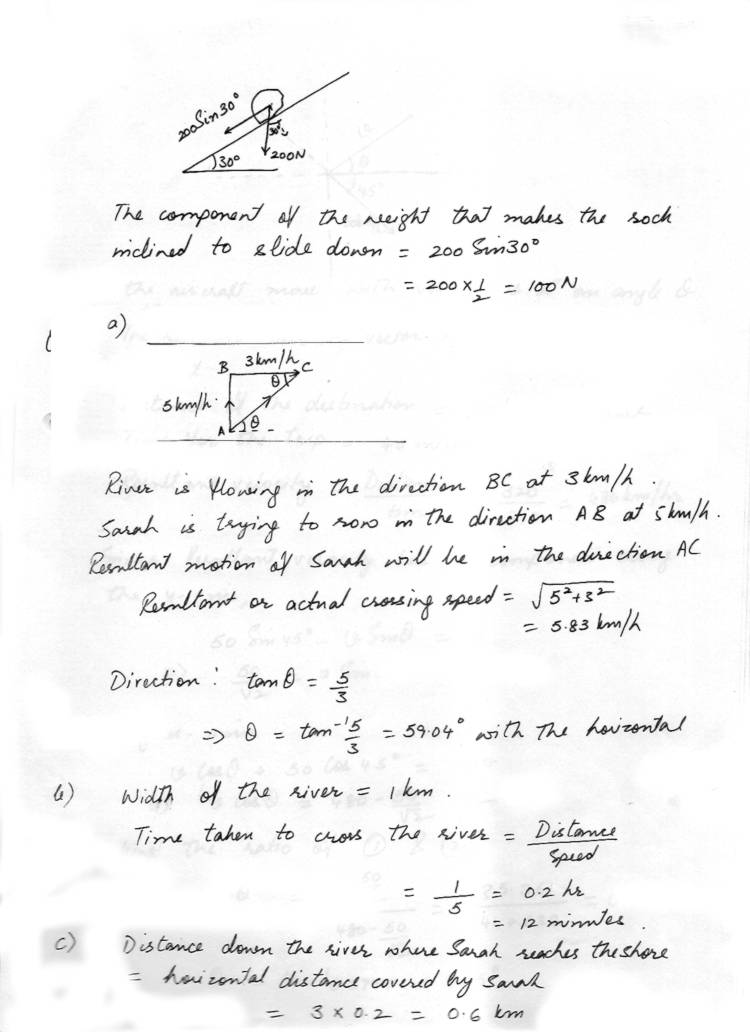 200Sin30°
30°
30°
200N
The component of the weight that makes the rock
inclined to slide down = 200 Sin30°
= 200 × 1/2 = 100 N
a)
B 3km/h C
θ
5km/h
A θ
River is flowing in the direction BC at 3km/h.
Sarah is trying to row in the direction AB at 5km/h.
Resultant motion of Sarah will be in the direction AC
Resultant or actual crossing speed = √5²+3²
= 5.83 km/h
Direction : tanθ = 5/3
=> θ = tan⁻¹ 5/3 = 59.04° with the horizontal
b) Width of the river = 1 km.
Time taken to cross the river = Distance/Speed
= 1/5 = 0.2 hr
= 12 minutes.
c) Distance down the river where Sarah reaches the shore
= horizontal distance covered by Sarah
= 3 × 0.2 = 0.6 km